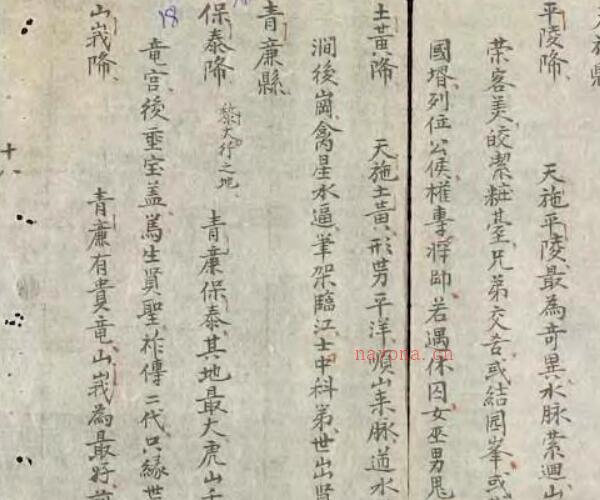 天施縣
平陵降 天施平陵最為奇異水脉縈迴山
荣客美皎潔粧䑓兄弟交吞或結囩峯或
國壻列位公侯權專將帥若遇休囚女巫男鬼
土黃降 天施土黃形势平洋順山来脉逆水
澗後崗禽星水逼筆架臨江士中科第世出賢
青廉縣
保泰降 黎大行之地 青廉保泰其地最大虎山
竜宫後垂宝盖篤生賢聖祚傳二代只緣世
18
山峩降 青廉有貴竜山峩為最好
十八
nayona.cn